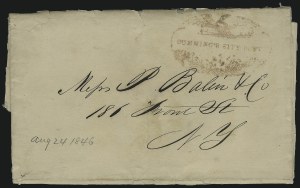 Messrs P Balen & Co
186 Front St
N Y
Aug 24 1846